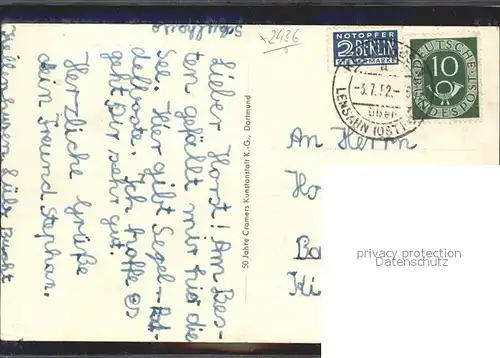 Lieber Horst! Am Bes-
ten gefällt mir hier die
See. Hier gibt Segel- Pad-
delboote. Ich hoffe es
geht dir sehr gut.
Herzliche Grüße
dein Freund Stephan.
Kellenhusen Lüb. Bucht
50 Jahre Cramers Kunstanstalt K.-G., Dortmund
2436
NOTOPFER
2 BERLIN
STEUERMARKE
DEUTSCHE
10
BUNDESPOST
-3.7.52.-
über
LENSAHN (OSTH
An Herrn
Ho
Ba
Ki
privacy protection
Datenschutz